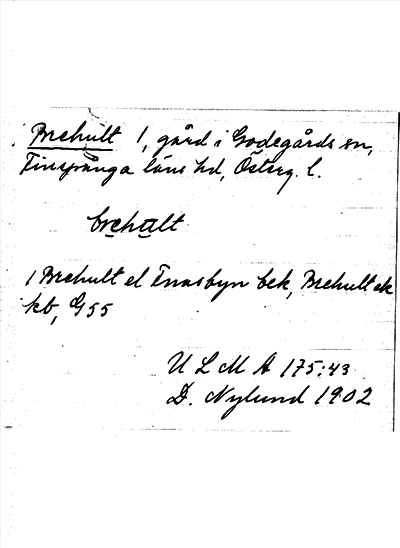 Brehult 1, gård i Godegårds sn,
Finspånga läns hd, Österg. l.
brehult
1 Brehult el Enasbyn bek, Brehult ek
kb, G 55
U L M A 175:43
D. Nylund 1902